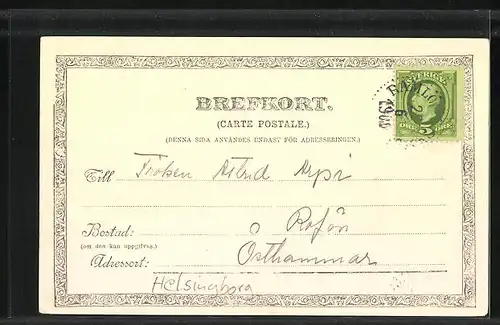 SVERIGE
BREFKORT.
(CARTE POSTALE.)
(DENNA SIDA ANVÄNDES ENDAST FÖR ADRESSERINGEN.)
ÖRE 5 ÖRE
Till Fröken Astrid Arpi
Bostad: Rafön
(om den kan uppgifvas.)
Adressort: Östhammar
Helsingborg